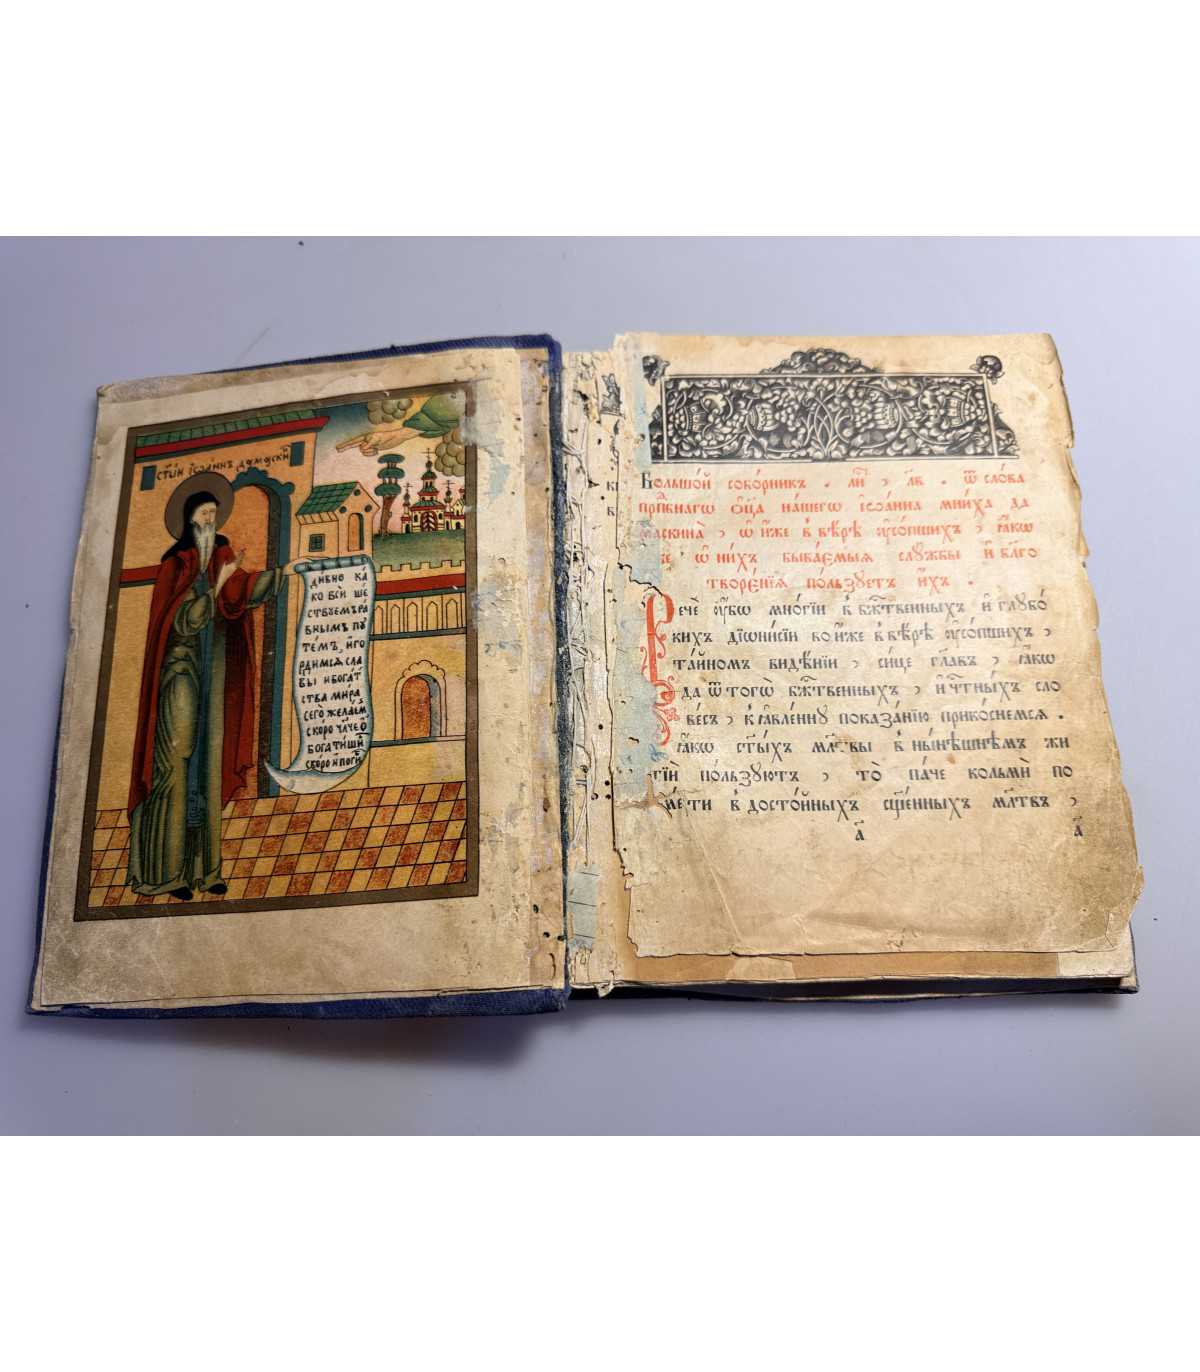 СТЫ́Й ІѠА́ННЪ ДАМАСКИ́Й
ДИ́ВНО КА́
КО ВСИ́ ШЕ́
СТВУЕМЪ РА́
ВНЫМЪ ПУ
ТЕ́МЪ, И҆ ГО
РДИ́МСѦ СЛА
ВЫ И БОГАТ
СТВА МИ́РА
СЕГѠ̀ ЖЕЛА́ЕМ
СКОРО
БОГАТИ́ШИ
СКО́РО И ПОГИ
Большо́й собо́рникъ . ли҃ , л҃в . ѿ сло́ва
прпⷣбнагѡ ѻ҆ц҃а̀ на́шегѡ і҆ѡа́нна мни́ха да
маскина̀ , ѡ҆ и҆́же в вѣ́рѣ ᲂу҆со́пшихъ , ꙗ҆́кѡ
ѡ҆ ни́хъ быва́емыѧ слꙋ́жбы и҆ бл҃го
творе́нїѧ по́льзꙋетъ и҆́хъ .
Рече́ ᲂу҆́бѡ мно́гїи в бж҃твенныхъ и҆ глꙋбо́
кихъ дїѡни́сїи во и҆́же в вѣ́рѣ ᲂу҆со́пшихъ ,
та́йномъ видѣ́нїи , си́це гл҃авъ , ꙗ҆́кѡ
да ѿ тогѡ̀ бж҃твенныхъ , и҆ чⷭ҇тны́хъ сло
ве́съ , к ꙗ҆вле́ннꙋ показа́нїю прико́снемсѧ .
ꙗ҆́кѡ ст҃ы́хъ мл҃твы в ны́нѣшнемъ жи
тїѝ по́льзꙋютъ , то̀ па́че кольмѝ по
ме́рти в досто́йныхъ сщ҃е́нныхъ мл҃твъ ,
а҃ а҃